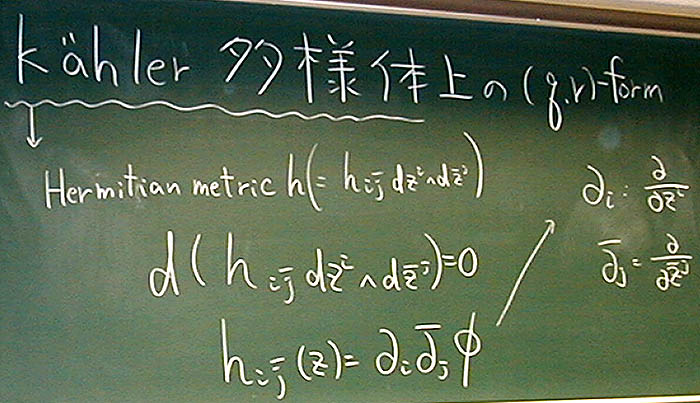 Kähler 多様体上の (q,r)-form
↓
Hermitian metric h(= h_{i\bar{j}} dz^i ∧ d\bar{z}^j)
∂_i : ∂/∂z^i
d( h_{i\bar{j}} dz^i ∧ d\bar{z}^j )=0
\bar{∂}_j = ∂/∂\bar{z}^j
h_{i\bar{j}}(z) = ∂_i \bar{∂}_j φ